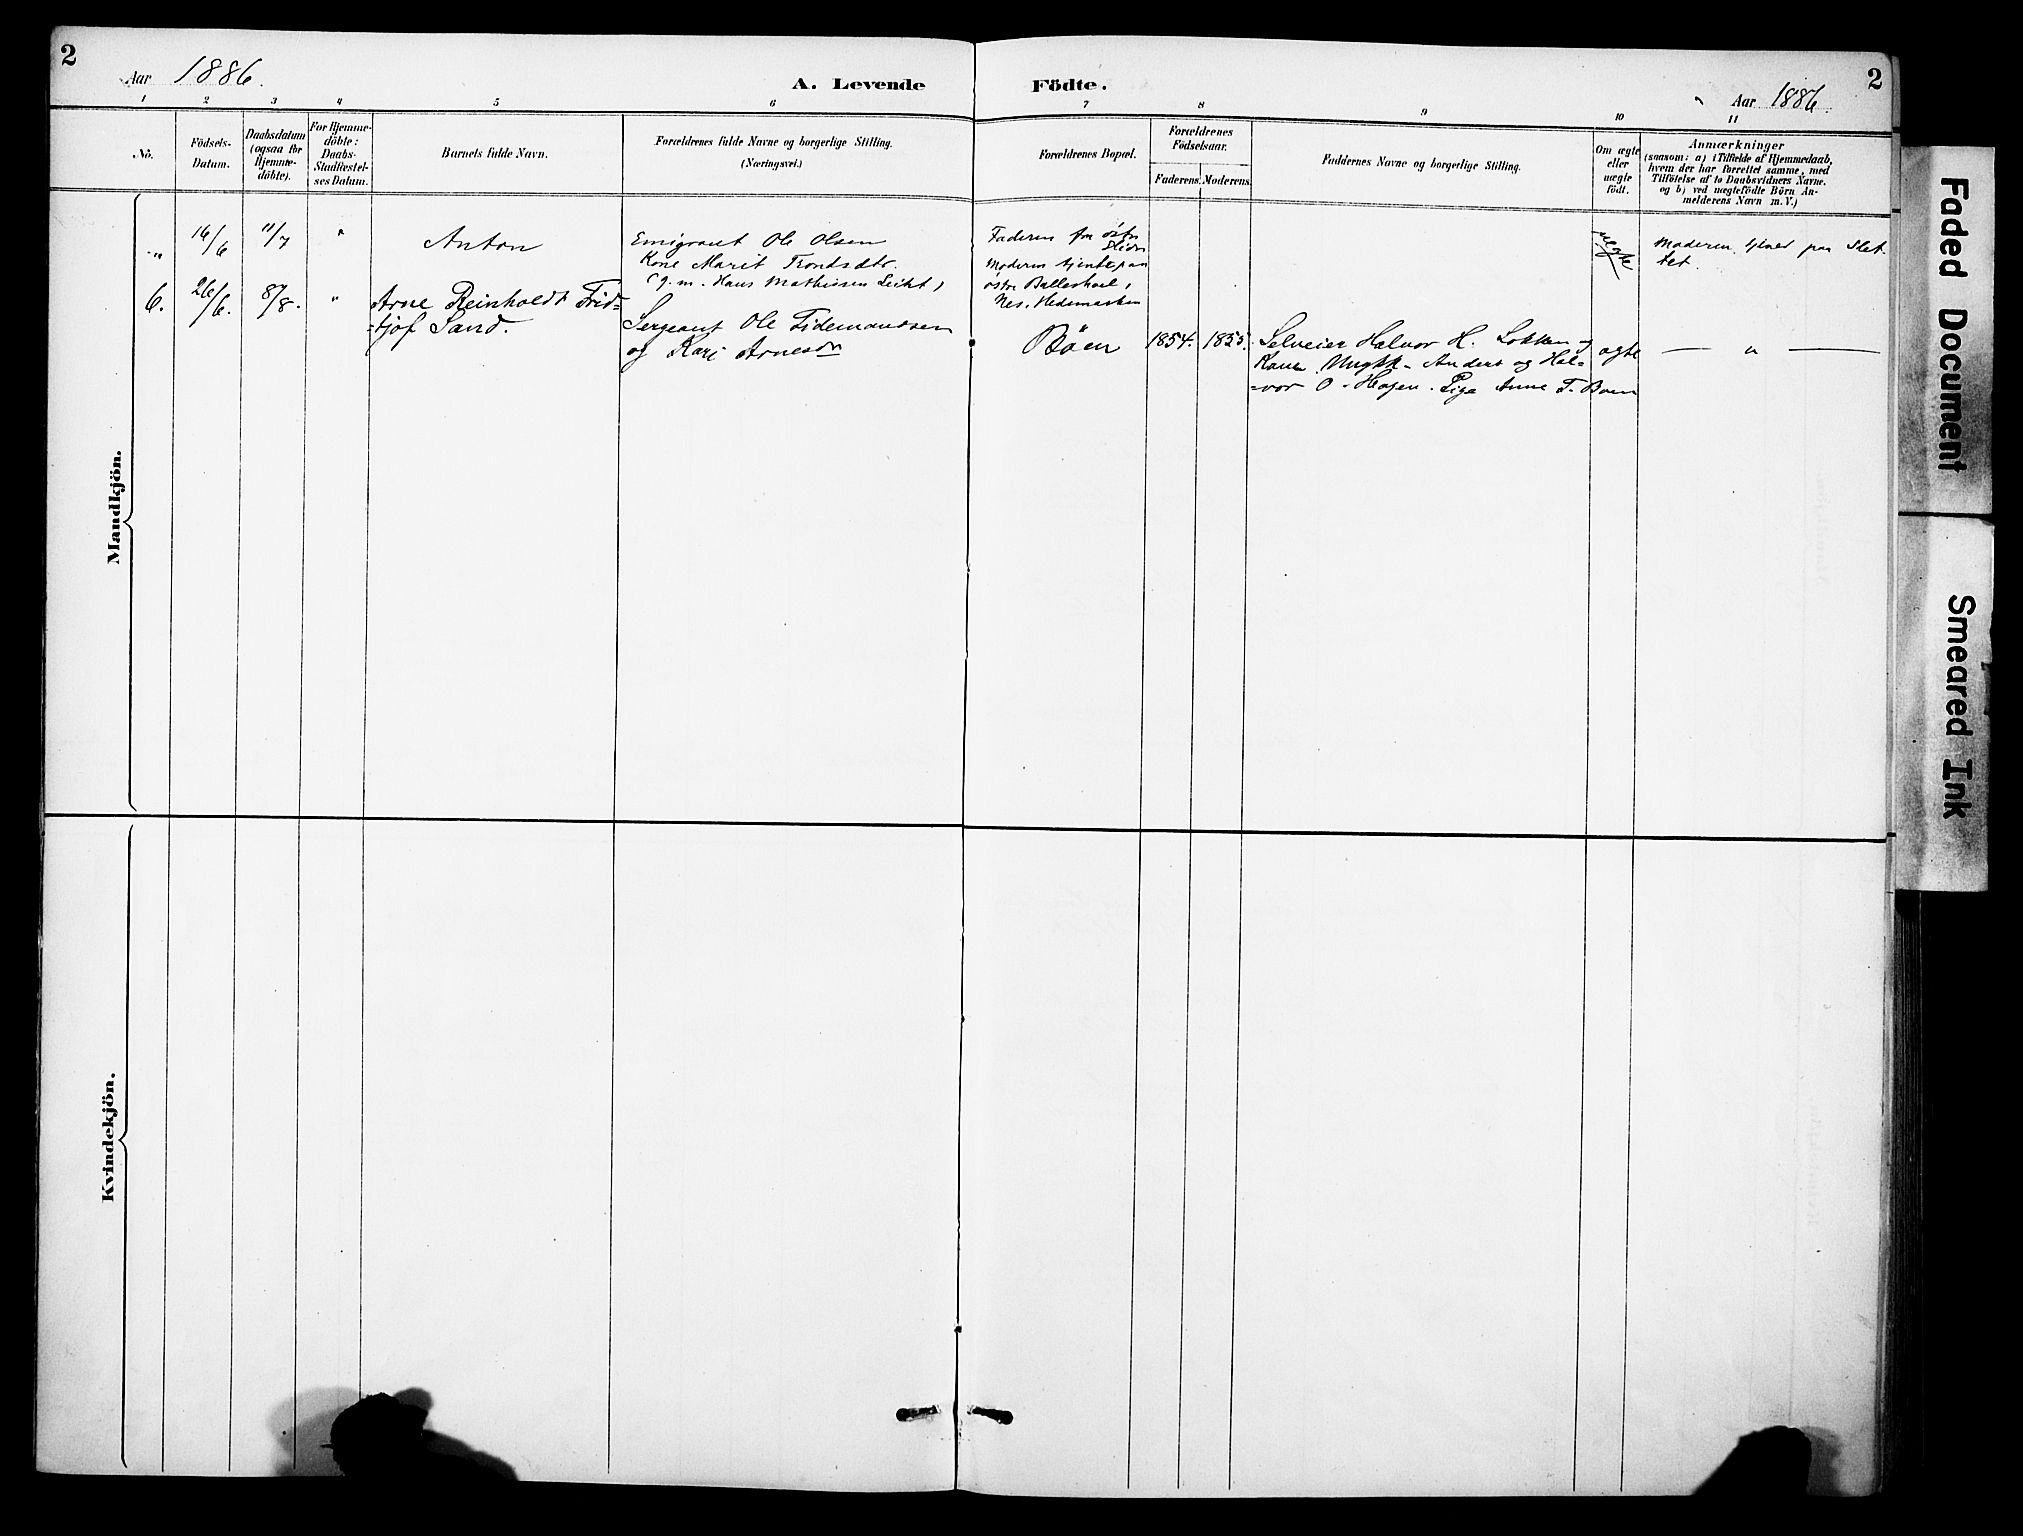 2
Aar 1886.
A. Levende Födte.
Aar 1886.
2
1 2 3 4 5 6 7 8 9 10 11
No.
Födsels-
Datum.
Daabsdatum
(ogsaa for
Hjemme-
döbte).
For Hjemme-
döbte:
Daabs-
Stadfæstel-
ses Datum.
Barnets fulde Navn.
Forældrenes fulde Navne og borgerlige Stilling.
(Næringsvei.)
Forældrenes Bopæl.
Forældrenes
Födselsaar.
Faderens. Moderens.
Faddernes Navne og borgerlige Stilling.
Om ægte
eller
uægte
födt.
Anmærkninger
(saasom: a) i Tilfælde af Hjemmedaab,
hvem der har forrettet samme, med
Tilföielse af to Daabsvidners Navne.
og b) ved uægtefödte Börn An-
melderens Navn m. V.)
Mandkjön.
" 16/6 11/7 "
Anton
Emigrant Ole Olsen
Kone Marit Trondsdtr.
(g. m. Hans Mathiesen
Faderen fra östre
Slidre
Moderen tjente paa
östre
Nes. Hedemarken
uægte
Moderen paa Slet-
tet.
6. 26/6. 8/8. "
Arne Reinholdt Frid-
=tjof Sand.
Sergeant Ole Tidemandsen
og Kari Arnesdr
Böen
1854. 1855.
Selveier Halvor H. Lokken og
Kone. Ungkk. Anders og Hal=
=vor O. Hagen. Pige Anne T. Boen
ægte
— " —
Kvindekjön.
Faded Document
Smeared Ink